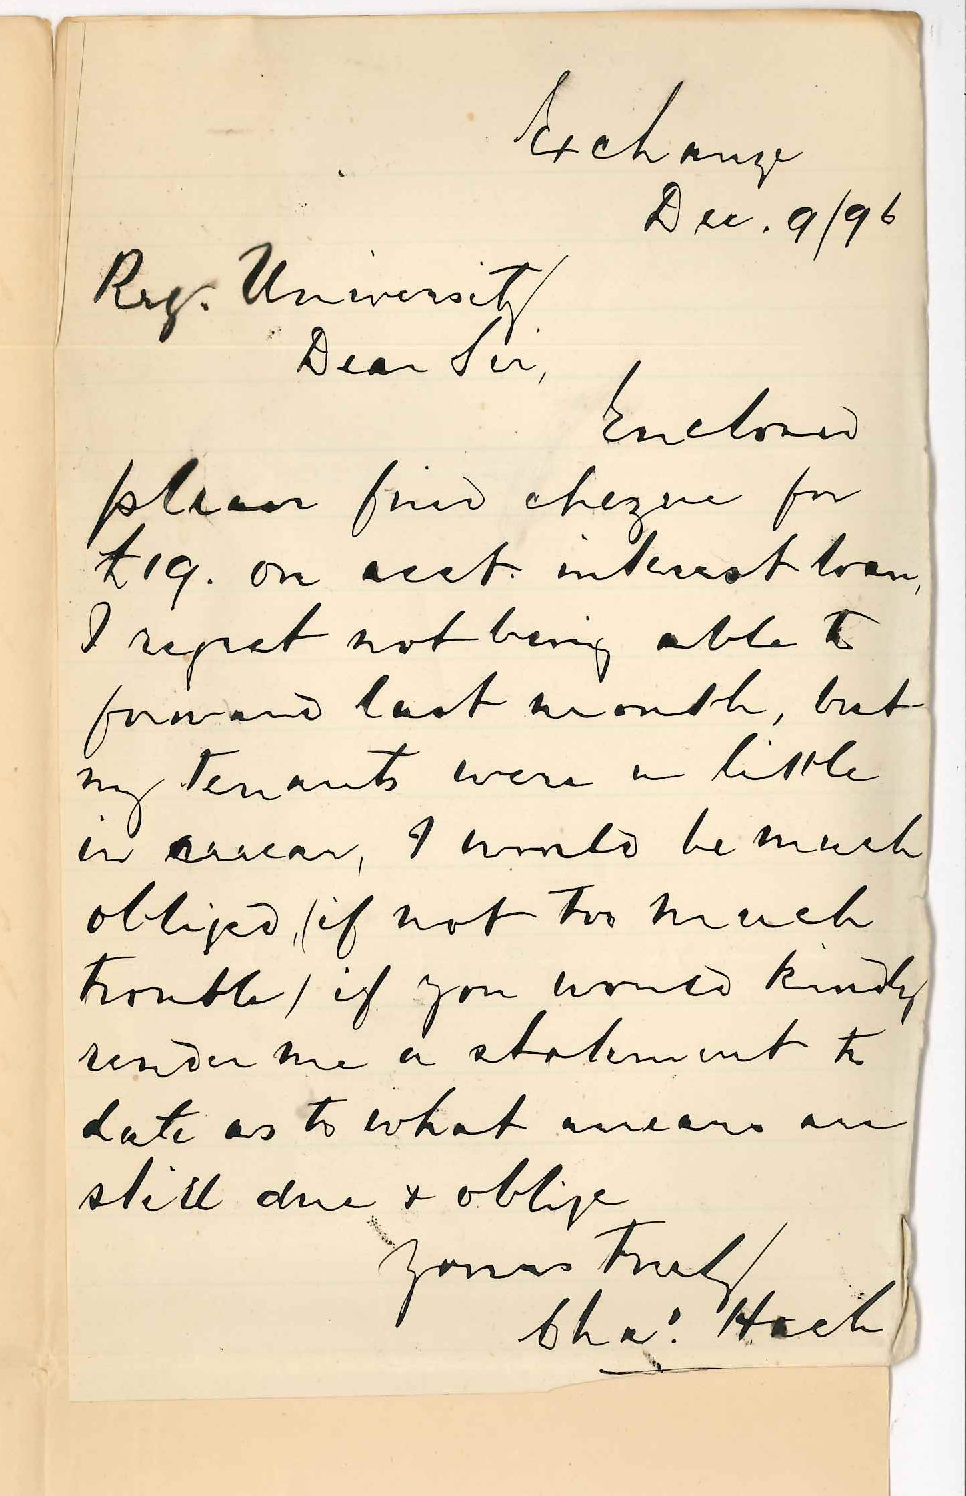 Exchange
Dec. 9/96
Reg. University
Dear Sir,
Enclosed
please find cheque for
£19. on acct. interest loan,
I regret not being able to
forward last month, but
my tenants were a little
in arrear, I would be much
obliged, (if not too much
trouble) if you would kindly
render me a statement to
date as to what arrears are
still due & oblige
Yours truly
Chas. Hack